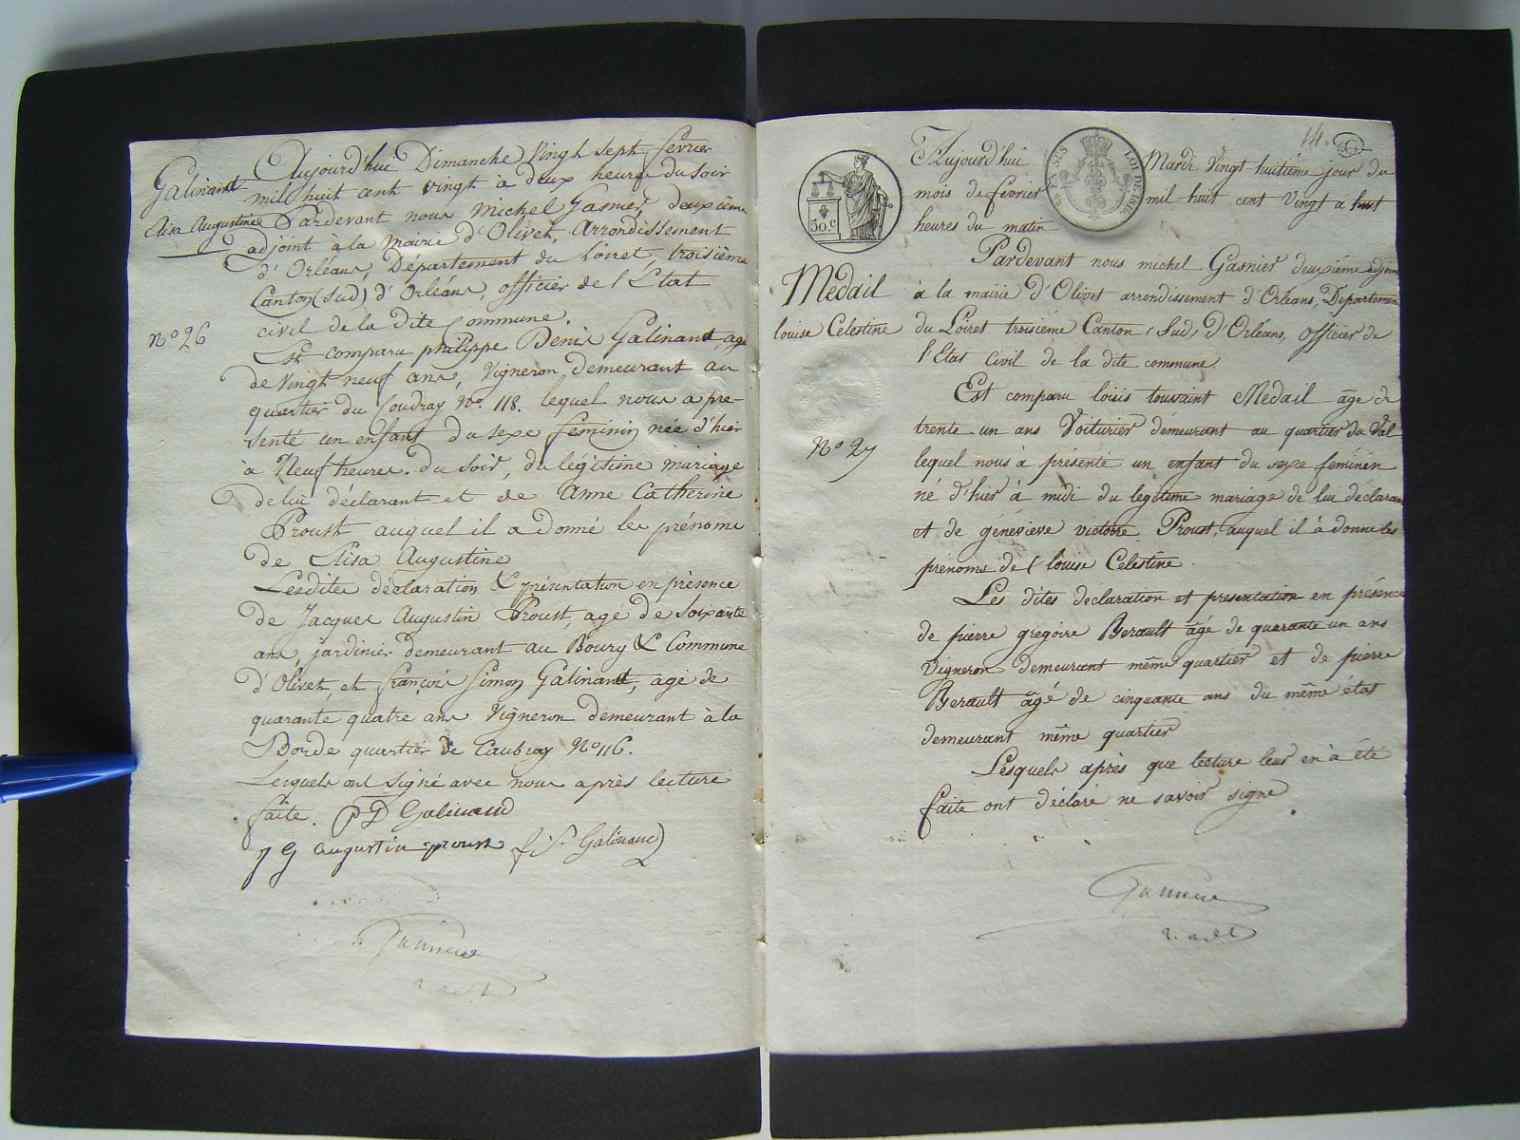 Galinand
Elisa Augustine
N° 26
Aujourd'hui Dimanche vingt sept fevrier
mil huit cent vingt à deux heures du soir
Pardevant nous Michel Gasnier deuxième
adjoint à la mairie d'Olivet, Arrondissement
d'Orléans, Département du Loiret, troisième
Canton (Sud) d'Orléans, officier de l'Etat
civil de la dite Commune.
Est comparu philippe Denis Galinand, agé
de vingt neuf ans, Vigneron, demeurant au
quartier du Coudray N° 118. lequel nous a pre-
senté un enfant du sexe féminin née d'hier
à Neuf heures du soir, du légitime mariage
de lui déclarant et de Anne Catherine
Proust auquel il a donné les prénoms
de Elisa Augustine
Lesdites déclaration & présentation en présence
de Jacques Augustin Proust, agé de soixante
ans, jardinier demeurant au Bourg & Commune
d'Olivet, et françois Simon Galinand, agé de
quarante quatre ans Vigneron demeurant à la
Borde quartier de N° 116.
Lesquels ont signé avec nous après lecture
faite. P D Galinand
J augustin proust f s Galinand
14.
50.c
LOI DE 1816
Aujourd'hui Mardi Vingt huitième jour du
mois de fevrier mil huit cent Vingt a huit
heures du matin
Pardevant nous michel Gasnier deuxième adjoint
à la mairie d'Olivet arrondissement d'Orléans, Departement
du Loiret troisième Canton (Sud) d'Orléans, officier de
l'Etat Civil de la dite commune.
Medail
louise Celestine
N° 27
Est comparu loüis toussaint Médail âgé de
trente un ans Voiturier demeurant au quartier du Val
lequel nous à présenté un enfant du sexe feminin
né d'hier à midi du legitime mariage de lui déclarant
et de géneviève victoire Proust, auquel il à donné les
prenoms de louise Celestine.
Les dites declaration et presentation en présence
de pierre gregoire Berault âgé de quarante un ans
vigneron demeurant même quartier et de pierre
Berault âgé de cinquante ans du même état
demeurant même quartier
Lesquels après que lecture leur en à été
faite ont déclaré ne savoir signe